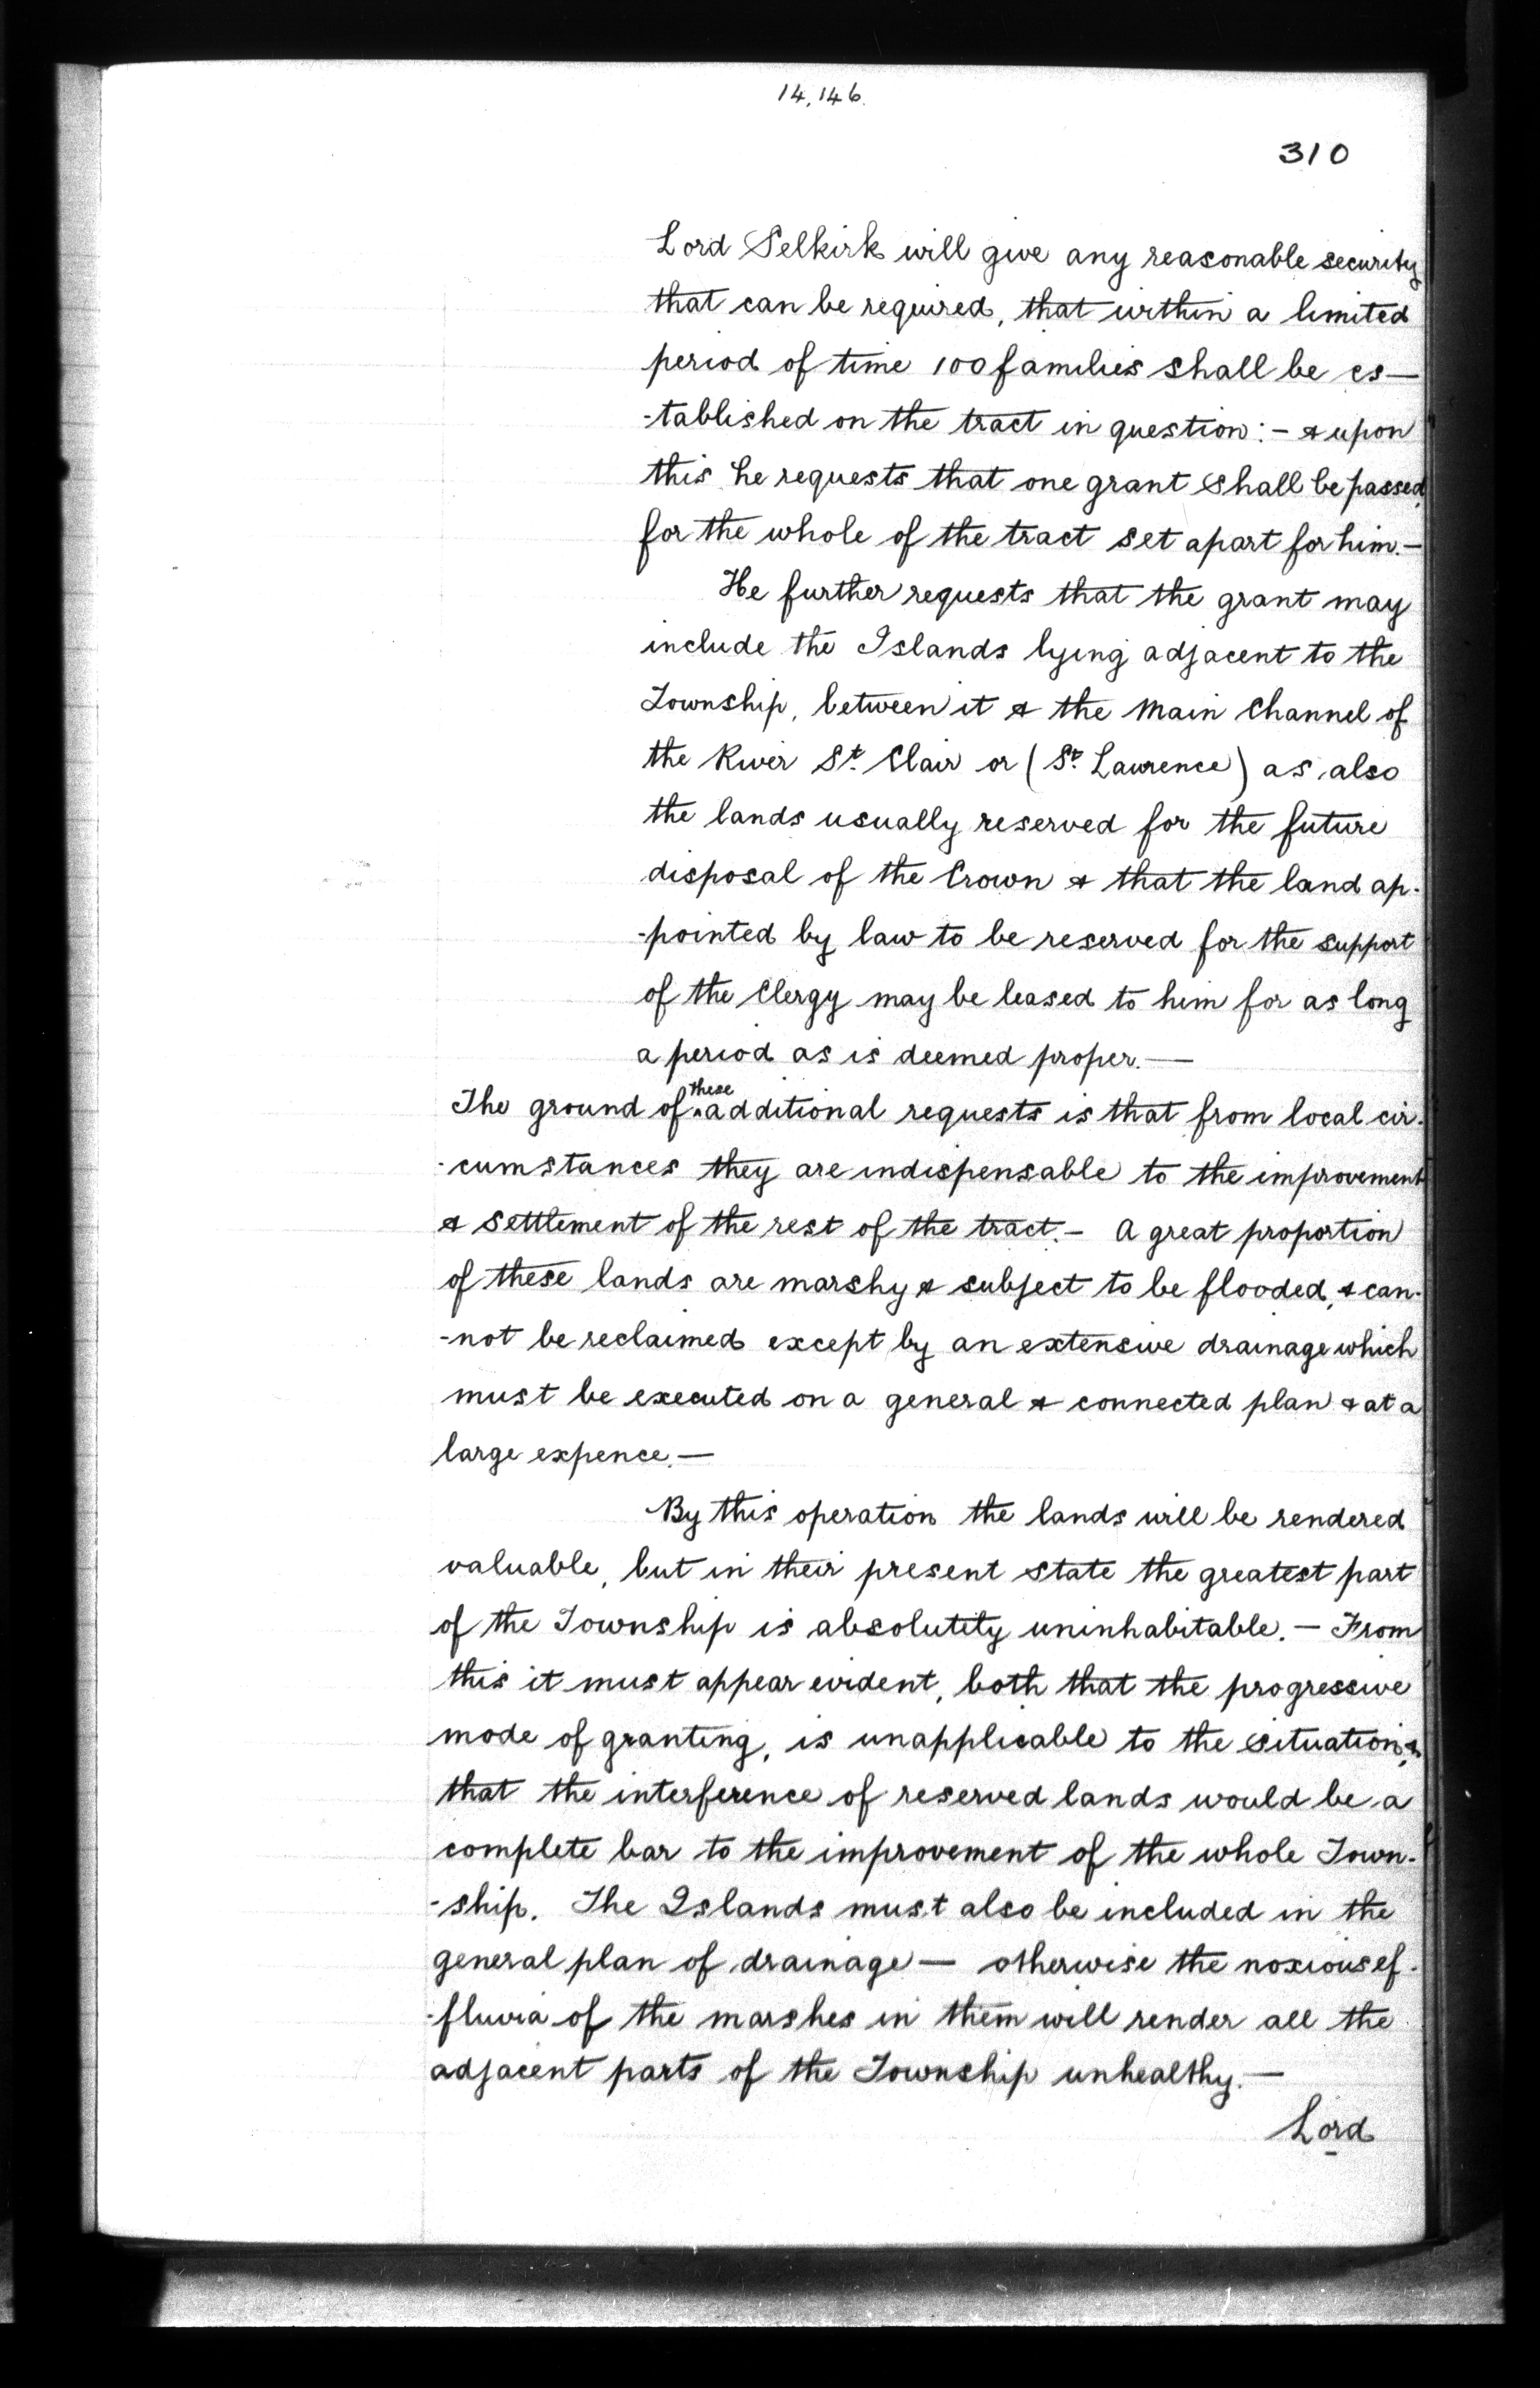 14,146.
310
Lord Selkirk will give any reasonable security
that can be required, that within a limited
period of time 100 families shall be es—
-tablished on the tract in question:- & upon
this he requests that one grant shall be passed
for the whole of the tract set apart for him.—
He further requests that the grant may
include the Islands lying adjacent to the
Township, between it & the Main Channel of
the River St. Clair or (St. Lawrence) as also
the lands usually reserved for the future
disposal of the Crown & that the land ap-
-pointed by law to be reserved for the support
of the Clergy may be leased to him for as long
a period as is deemed proper.—
The ground of these additional requests is that from local cir-
-cumstances they are indispensable to the improvement
& settlement of the rest of the tract.- A great proportion
of these lands are marshy & subject to be flooded, & can-
-not be reclaimed except by an extensive drainage which
must be executed on a general & connected plan & at a
large expence.—
By this operation the lands will be rendered
valuable, but in their present state the greatest part
of the Township is absolutity uninhabitable.— From
this it must appear evident, both that the progressive
mode of granting, is unapplicable to the situation, &
that the interference of reserved lands would be a
complete bar to the improvement of the whole Town-
-ship. The Islands must also be included in the
general plan of drainage— otherwise the noxious ef-
-fluvia of the marshes in them will render all the
adjacent parts of the Township unhealthy.—
Lord